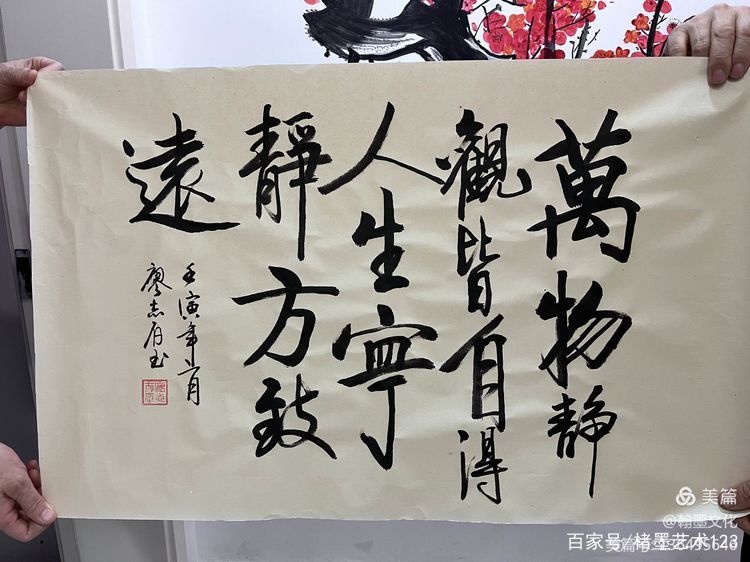 萬物静
觀皆自得
人生寧
靜方致
遠
壬寅年六月
廖志
美篇
@翰墨文化
百家号·楮墨艺术123